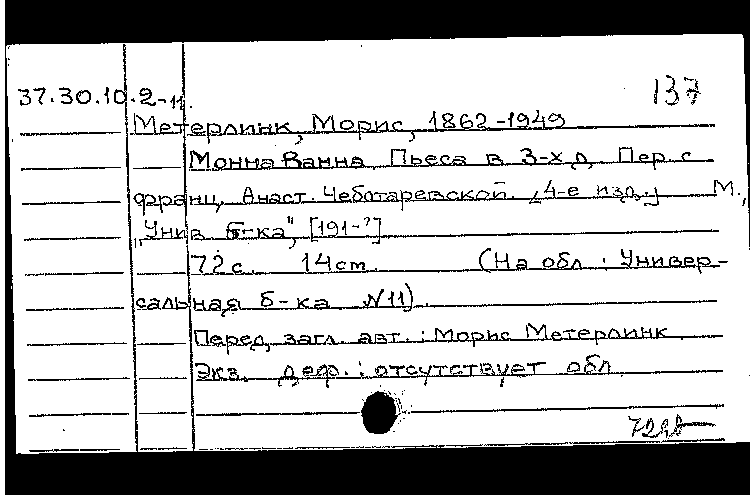 37.30.10.2-11.
137
Метерлинк, Морис, 1862-1949
Монна Ванна. Пьеса в 3-х д. Пер. с
франц. Анаст. Чеботаревской. [4-е изд.] М.,
"Унив. б-ка", [191-?]
72 с. 14 cm. (На обл.: Универ-
сальная б-ка №11).
Перед загл. авт.: Морис Метерлинк.
Экз. деф.: отсутствует обл.